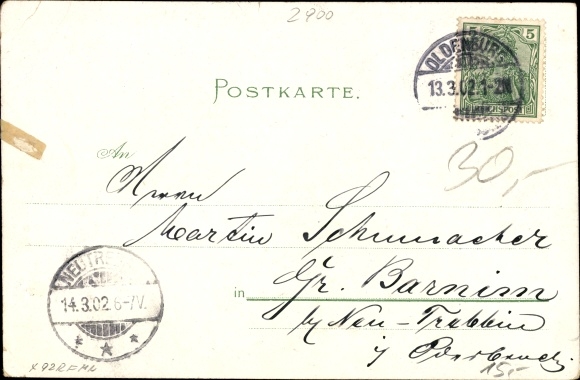 2900
5
OLDENBURG
13.3.02.1-2N
REICHSPOST
POSTKARTE.
30,-
An
Herrn
Martin Schumacher
in Gr. Barnim
by Neu-Trebbin
i/ Oderbruch
NEUTRE
14.3.02.6-7V.
15,-